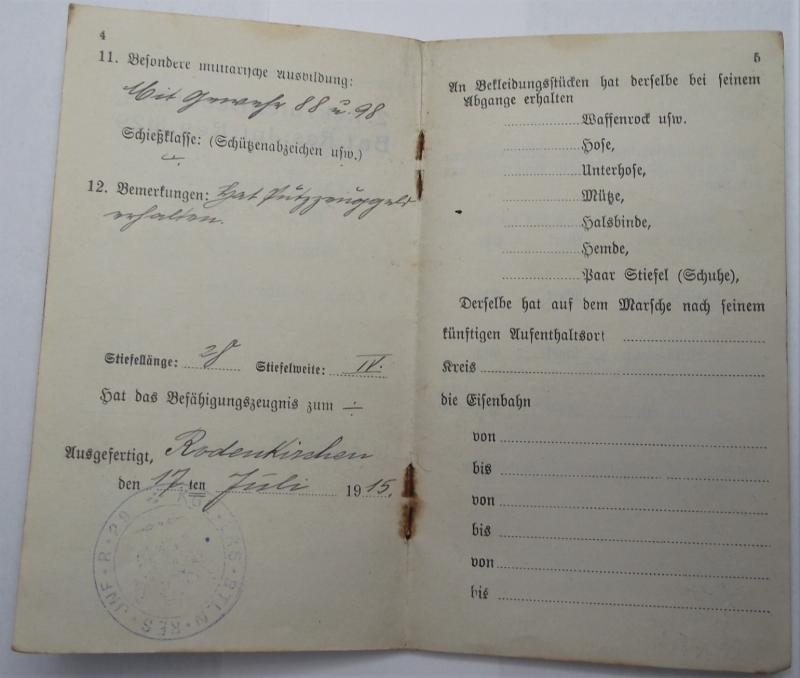 4
11. Besondere militärische Ausbildung:
Mit Gewehr 88 u. 98
Schießklasse: (Schützenabzeichen usw.)
12. Bemerkungen: Hat Putzzeuggeld
erhalten.
Stiefellänge: 28 Stiefelweite: IV.
Hat das Befähigungszeugnis zum ÷
Ausgefertigt, Rodenkirchen
den 17ten Juli 1915.
RES · BTLN · RES · INF · R · 29
5
An Bekleidungsstücken hat derselbe bei seinem
Abgange erhalten
Waffenrock usw.
Hose,
Unterhose,
Mütze,
Halsbinde,
Hemde,
Paar Stiefel (Schuhe),
Derselbe hat auf dem Marsche nach seinem
künftigen Aufenthaltsort
Kreis
die Eisenbahn
von
bis
von
bis
von
bis